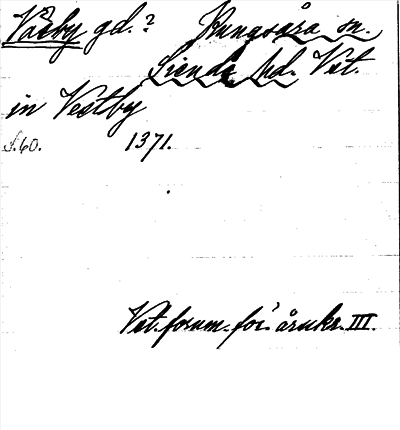 Väsby gd.? Kungsåra sn.
Siende hd. Vst.
in Vestby
S.60. 1371.
Vst. fornm.-för:s årsskr. III.